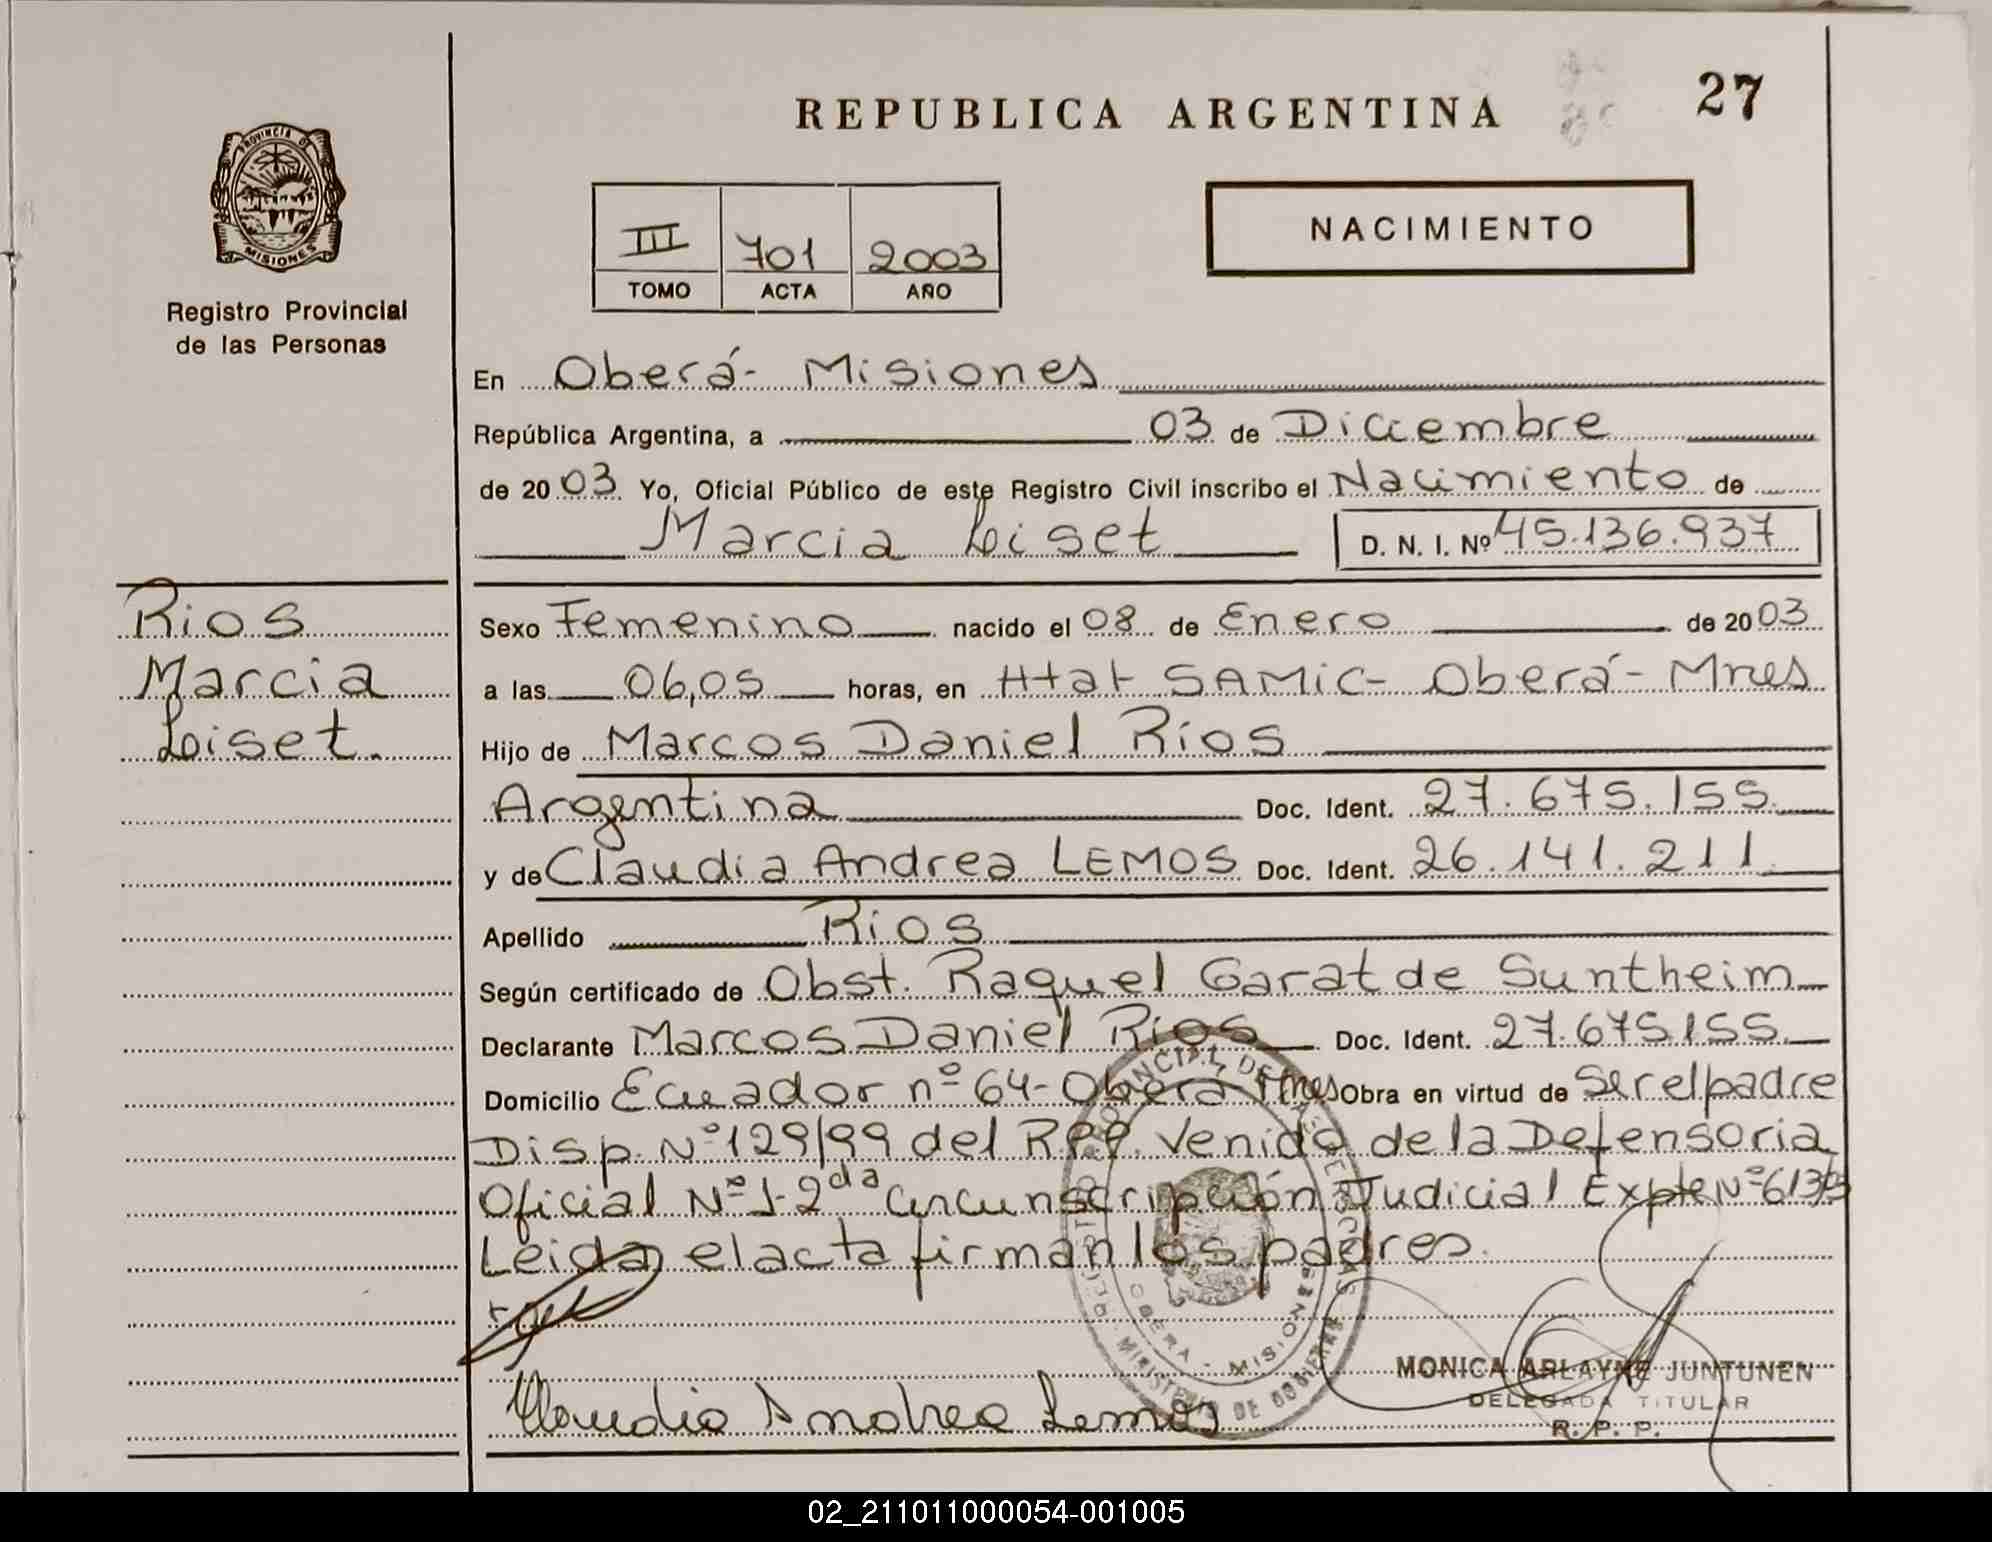 27
REPUBLICA ARGENTINA
NACIMIENTO
PROVINCIA DE
MISIONES
Registro Provincial
de las Personas
III 701 2003
TOMO ACTA AÑO
En Oberá - Misiones
República Argentina, a 03 de Diciembre
de 2003 Yo, Oficial Público de este Registro Civil inscribo el Nacimiento de
Marcia Liset D. N. I. Nº 45.136.937
Rios
Marcia
Liset.
Sexo Femenino nacido el 08 de Enero de 2003
a las 06,05 horas, en Htal SAMIC - Oberá - Mnes
Hijo de Marcos Daniel Ríos
Argentina Doc. Ident. 27.675.155
y de Claudia Andrea LEMOS Doc. Ident. 26.141.211
Apellido Rios
Según certificado de Obst. Raquel Garat de Suntheim
Declarante Marcos Daniel Ríos Doc. Ident. 27.675.155
Domicilio Ecuador nº 64 - Oberá - Mnes Obra en virtud de Ser el padre
Disp. Nº 129/99 del RPP. Venido de la Defensoria
Oficial Nº 1- 2da Circunscripción Judicial Expte Nº
Leida el acta firman los padres.
Claudia Andrea Lemos
MONICA ARLAYNE JUNTUNEN
DELEGADA TITULAR
R. P. P.
OBERA - MISIONES
MINISTERIO DE GOBIERNO
02_211011000054-001005